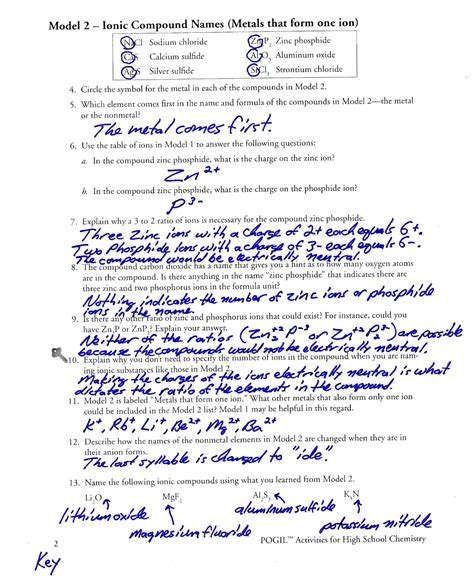 Model 2 – Ionic Compound Names (Metals that form one ion)
NaCl Sodium chloride Zn₃P₂ Zinc phosphide
CaS Calcium sulfide Al₂O₃ Aluminum oxide
Ag₂S Silver sulfide SrCl₂ Strontium chloride
4. Circle the symbol for the metal in each of the compounds in Model 2.
5. Which element comes first in the name and formula of the compounds in Model 2—the metal
or the nonmetal?
The metal comes first.
6. Use the table of ions in Model 1 to answer the following questions:
a. In the compound zinc phosphide, what is the charge on the zinc ion?
Zn²⁺
b. In the compound zinc phosphide, what is the charge on the phosphide ion?
P³⁻
7. Explain why a 3 to 2 ratio of ions is necessary for the compound zinc phosphide.
Three Zinc ions with a charge of 2+ each equals 6+.
Two Phosphide ions with a charge of 3- each equals 6-.
The compound would be electrically neutral.
8. The compound carbon dioxide has a name that gives you a hint as to how many oxygen atoms
are in the compound. Is there anything in the name "zinc phosphide" that indicates there are
three zinc and two phosphorus ions in the formula unit?
Nothing indicates the number of zinc ions or phosphide
ions in the name.
9. Is there any other ratio of zinc and phosphorus ions that could exist? For instance, could you
have Zn₂P or ZnP₂? Explain your answer.
Neither of the ratios (Zn₂⁺² P⁻³ or Zn⁺² P₂³⁻) are possible
because the compounds would not be electrically neutral.
10. Explain why you don't need to specify the number of ions in the compound when you are nam-
ing ionic substances like those in Model 2.
Making the charges of the ions electrically neutral is what
dictates the ratio of the elements in the compound.
11. Model 2 is labeled "Metals that form one ion." What other metals that also form only one ion
could be included in the Model 2 list? Model 1 may be helpful in this regard.
K⁺, Rb⁺, Li⁺, Be²⁺, Mg²⁺, Ba²⁺
12. Describe how the names of the nonmetal elements in Model 2 are changed when they are in
their anion forms.
The last syllable is changed to "ide".
13. Name the following ionic compounds using what you learned from Model 2.
Li₂O MgF₂ Al₂S₃ K₃N
lithium oxide magnesium fluoride aluminum sulfide potassium nitride
2 POGIL™ Activities for High School Chemistry
Key